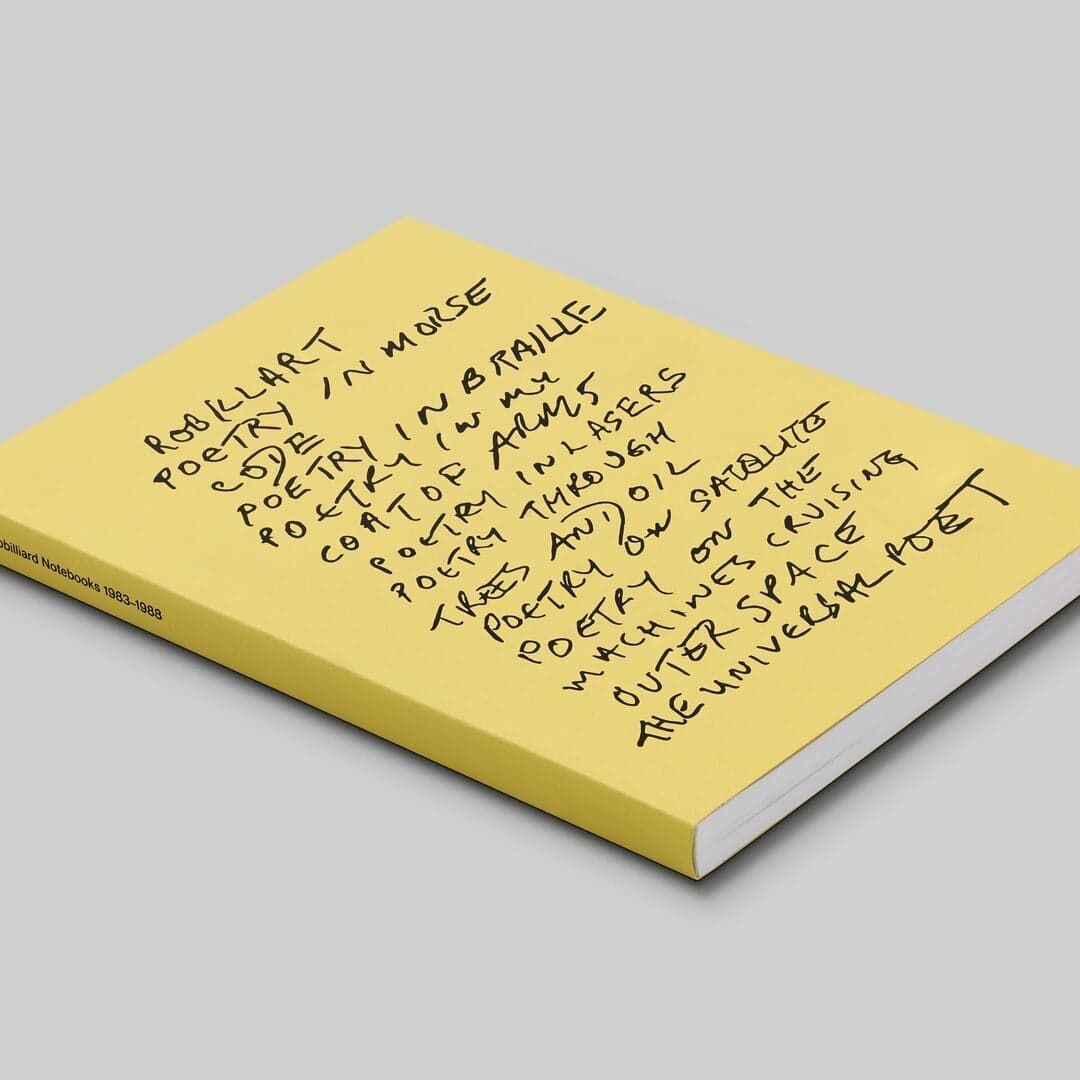 ROBILLART
POETRY IN MORSE
CODE
POETRY IN BRAILLE
POETRY IN MY
COAT OF ARMS
POETRY IN LASERS
POETRY THROUGH
TREES AND OIL
POETRY ON SATELLITE
POETRY ON THE
MACHINES CRUISING
OUTER SPACE
THE UNIVERSAL POET
obilliard Notebooks 1983-1988